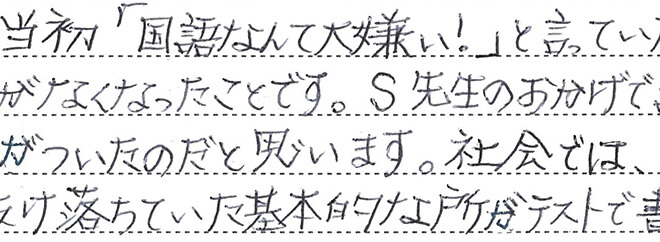 当初「国語なんて大嫌い!」と言ってい
がなくなったことです。S先生のおかげで
がついたのだと思います。社会では、
け落ちていた基本的な所がテストで書